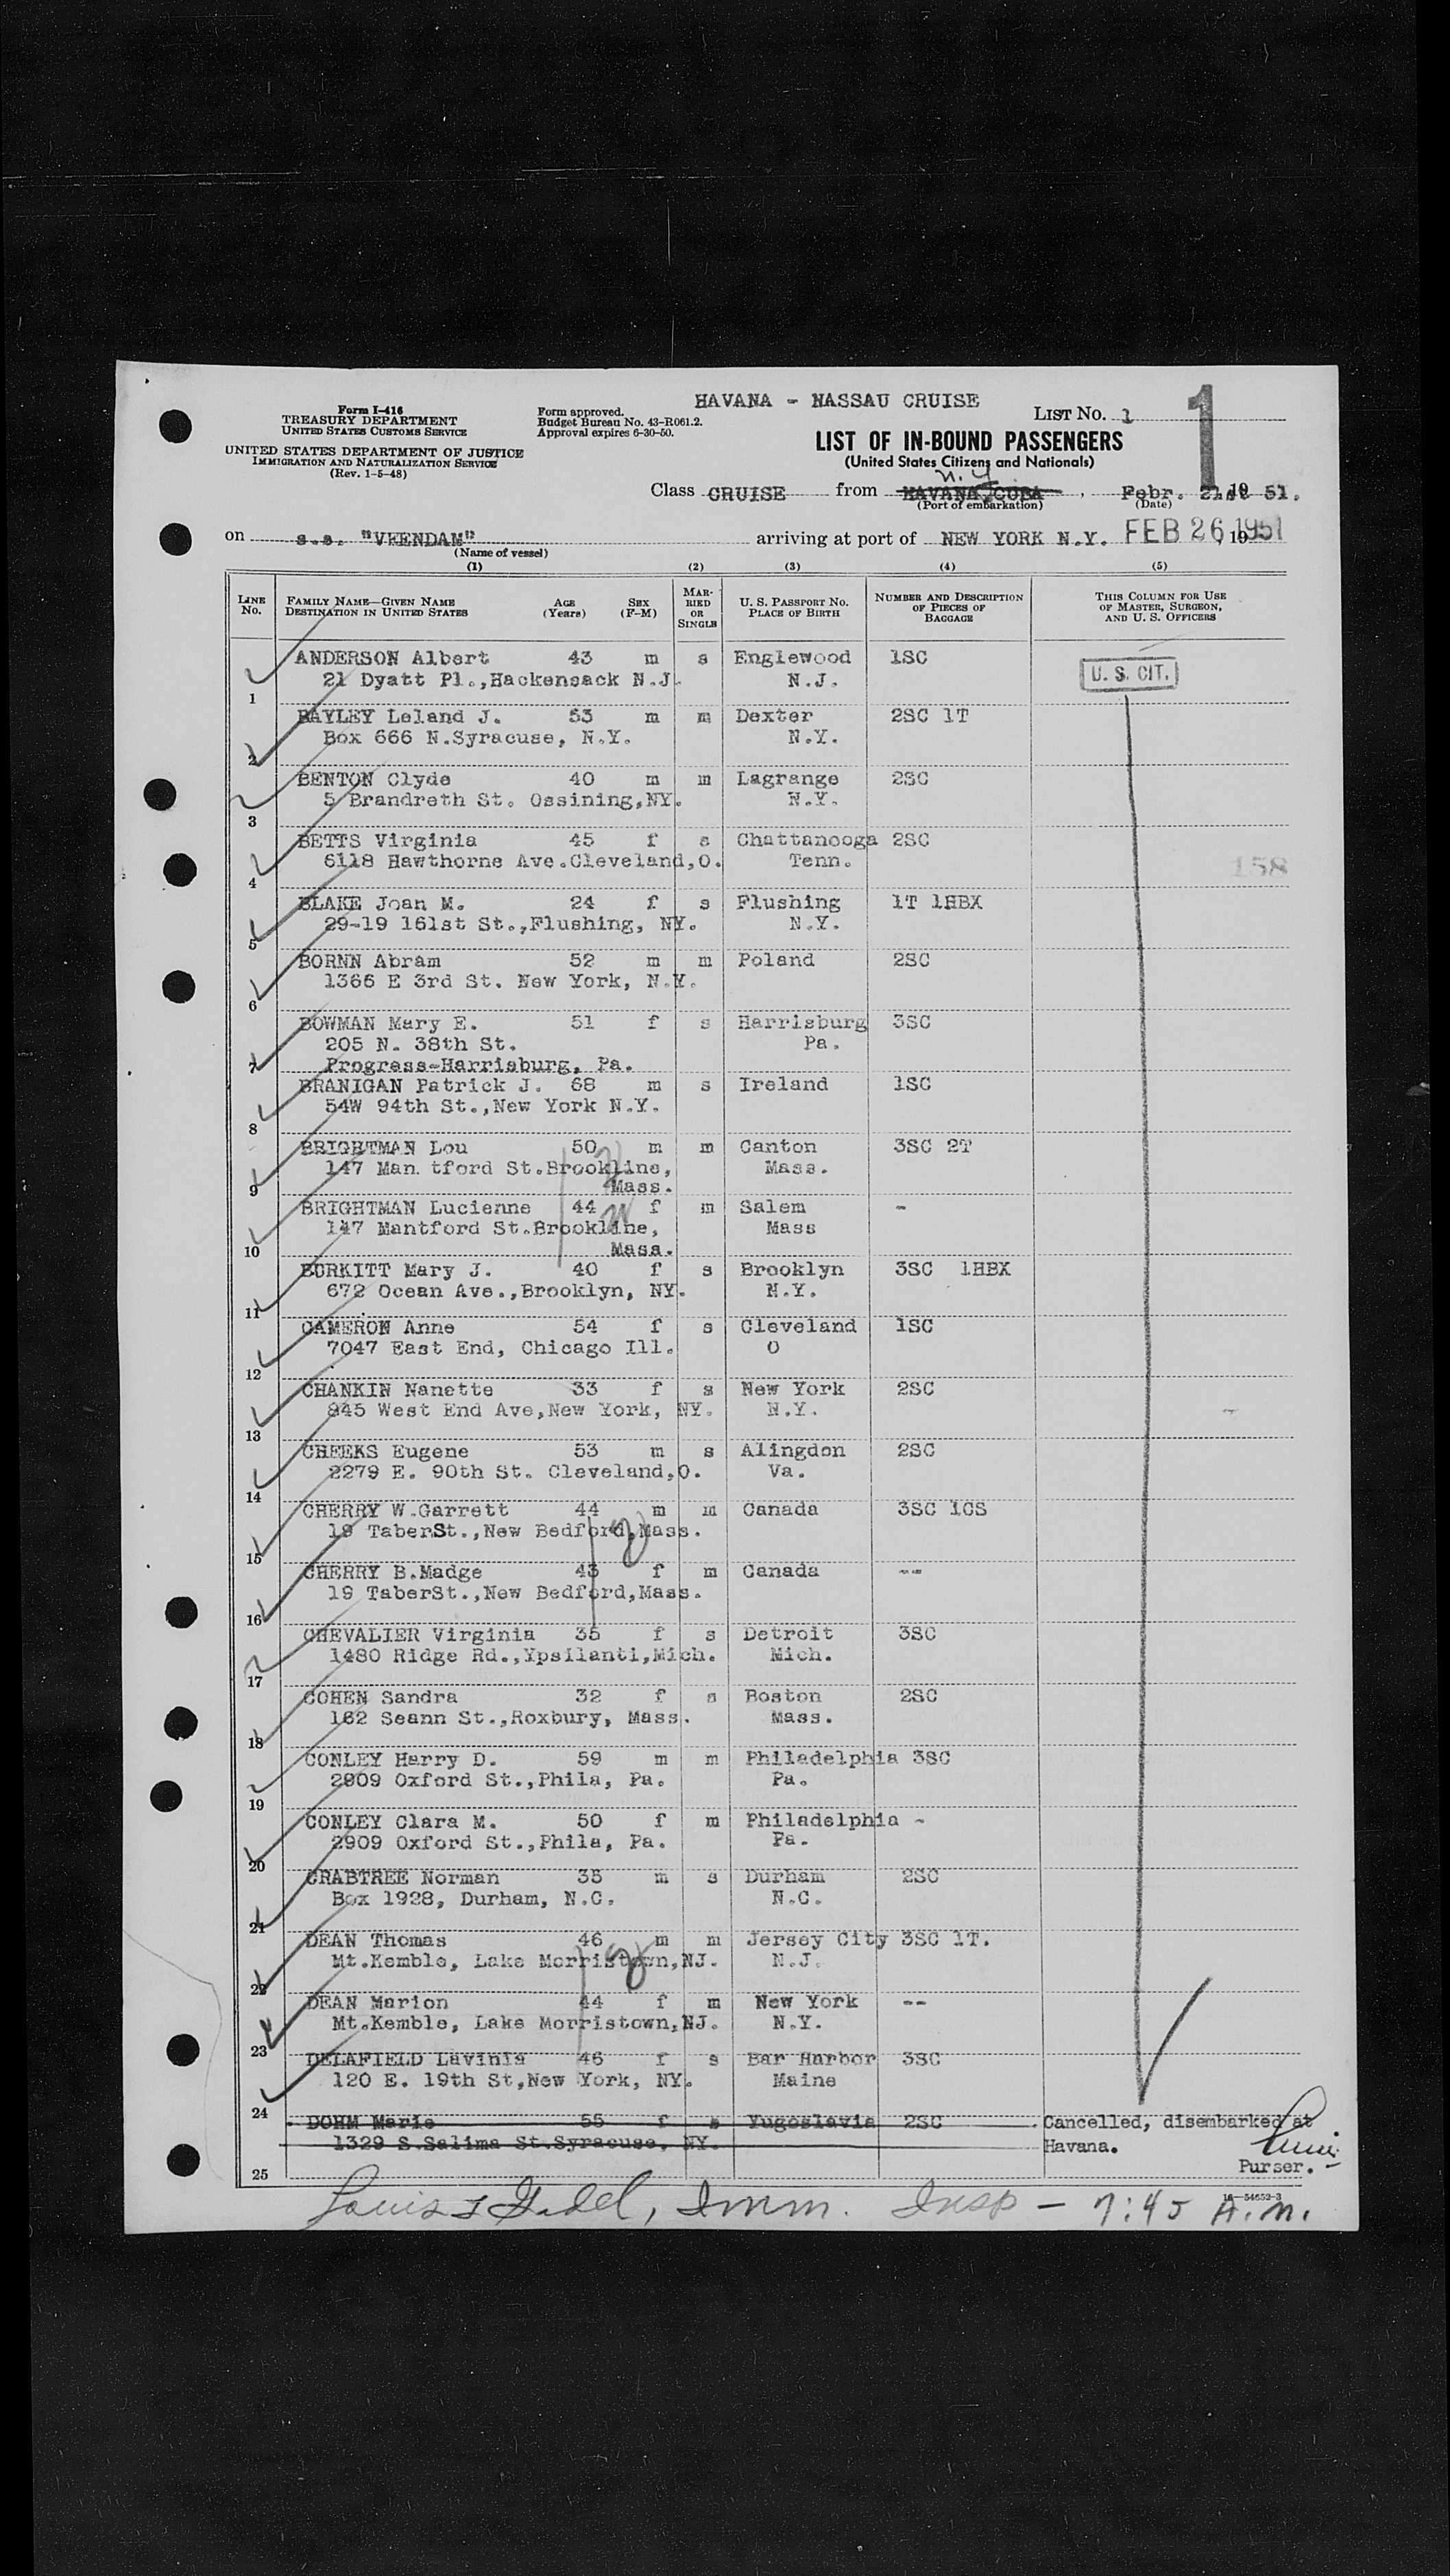 HAVANA - NASSAU CRUISE
Form I-416
TREASURY DEPARTMENT
UNITED STATES CUSTOMS SERVICE
UNITED STATES DEPARTMENT OF JUSTICE
IMMIGRATION AND NATURALIZATION SERVICE
(Rev. 1-5-48)
Form approved.
Budget Bureau No. 43-R061.2.
Approval expires 6-30-50.
LIST NO. 1
1
LIST OF IN-BOUND PASSENGERS
(United States Citizens and Nationals)
N.Y
Class CRUISE from HAVANA, CUBA, Febr. 21st 1951.
(Port of embarkation) (Date)
on s.s. "VEENDAM" arriving at port of NEW YORK N.Y. FEB 26 1951, 19
(Name of vessel)
(1) (2) (3) (4) (5)
LINE NO. FAMILY NAME—GIVEN NAME DESTINATION IN UNITED STATES AGE (Years) SEX (F-M) MARRIED OR SINGLE U. S. PASSPORT NO. PLACE OF BIRTH NUMBER AND DESCRIPTION OF PIECES OF BAGGAGE THIS COLUMN FOR USE OF MASTER, SURGEON, AND U. S. OFFICERS
ANDERSON Albert 43 m s Englewood 1SC
21 Dyatt Pl.,Hackensack N.J. N.J. U. S. CIT.
1
BAYLEY Leland J. 53 m m Dexter 2SC 1T
Box 666 N.Syracuse, N.Y. N.Y.
2
BENTON Clyde 40 m m Lagrange 2SC
5 Brandreth St. Ossining,NY. N.Y.
3
BETTS Virginia 45 f s Chattanooga 2SC
6118 Hawthorne Ave.Cleveland,O. Tenn.
158
4
BLAKE Joan M. 24 f s Flushing 1T 1HBX
29-19 161st St.,Flushing, NY. N.Y.
5
BORNN Abram 52 m m Poland 2SC
1366 E 3rd St. New York, N.Y.
6
BOWMAN Mary E. 51 f s Harrisburg 3SC
205 N. 38th St. Pa.
7 Progress-Harrisburg, Pa.
BRANIGAN Patrick J. 68 m s Ireland 1SC
54W 94th St.,New York N.Y.
8
BRIGHTMAN Lou 50 m m Canton 3SC 2T
147 Man tford St.Brookline, Mass.
9 Mass.
BRIGHTMAN Lucienne 44 f m Salem -
147 Mantford St.Brookline, Mass
10 Mass.
BURKITT Mary J. 40 f s Brooklyn 3SC 1HBX
672 Ocean Ave.,Brooklyn, NY. N.Y.
11
CAMERON Anne 54 f s Cleveland 1SC
7047 East End, Chicago Ill. O
12
CHANKIN Nanette 33 f s New York 2SC
845 West End Ave,New York, NY. N.Y.
13
CHEEKS Eugene 53 m s Alingdon 2SC
2279 E. 90th St. Cleveland,O. Va.
14
CHERRY W.Garrett 44 m m Canada 3SC 1CS
19 TaberSt.,New Bedford,Mass.
2
15
CHERRY B.Madge 43 f m Canada --
19 TaberSt.,New Bedford,Mass.
16
CHEVALIER Virginia 35 f s Detroit 3SC
1480 Ridge Rd.,Ypsilanti,Mich. Mich.
17
COHEN Sandra 32 f s Boston 2SC
162 Seann St.,Roxbury, Mass. Mass.
18
CONLEY Harry D. 59 m m Philadelphia 3SC
2909 Oxford St.,Phila, Pa. Pa.
19
CONLEY Clara M. 50 f m Philadelphia -
2909 Oxford St.,Phila, Pa. Pa.
20
CRABTREE Norman 35 m s Durham 2SC
Box 1928, Durham, N.C. N.C.
21
DEAN Thomas 46 m m Jersey City 3SC 1T.
Mt.Kemble, Lake Morristown,NJ. N.J.
2
22
DEAN Marion 44 f m New York --
Mt.Kemble, Lake Morristown,NJ. N.Y.
23
DELAFIELD Lavinia 46 f s Bar Harbor 3SC
120 E. 19th St,New York, NY. Maine
24
DOHM Marie 55 f s Yugoslavia 2SC Cancelled, disembarked at
1329 S.Salima St.Syracuse, NY. Havana.
25 Purser.
16—54652-3
Louis Imm. Insp - 7:45 A.M.